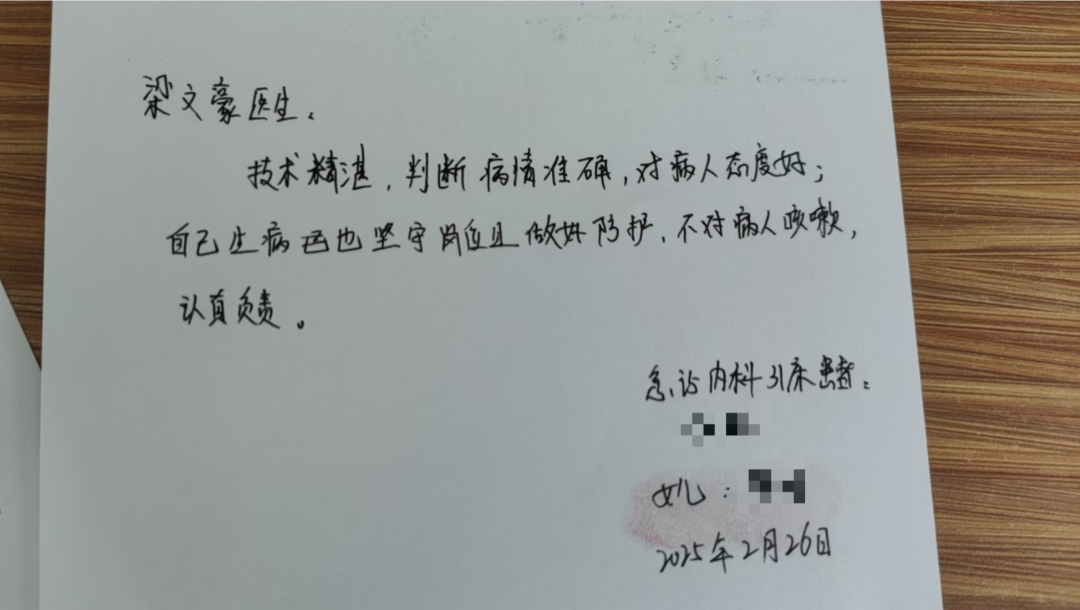 梁文豪医生。
技术精湛，判断病情准确，对病人态度好；
自己生病也坚守岗位且做好防护、不对病人咳嗽，
认真负责。
急诊内科31床患者：
女儿：
2025年2月26日